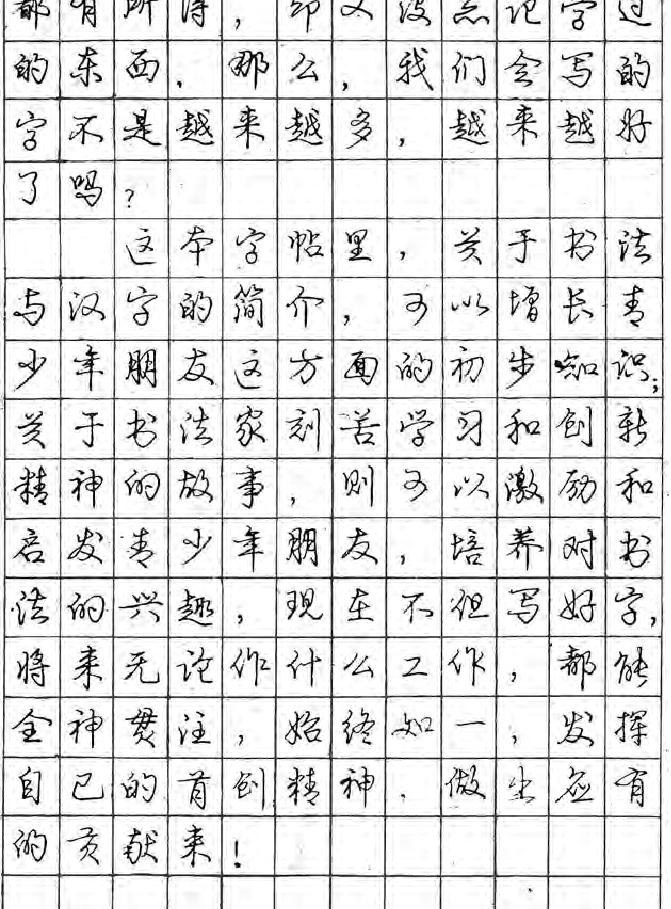 都有所得，却又没忘记学过
的东西，那么，我们会写的
字不是越来越多，越来越好
了吗？
这本字帖里，关于书法
与汉字的简介，可以增长青
少年朋友这方面的初步知识；
关于书法家刻苦学习和创新
精神的故事，则可以激励和
启发青少年朋友，培养对书
法的兴趣，现在不但写好字，
将来无论作什么工作，都能
全神贯注，始终如一，发挥
自己的首创精神，做出应有
的贡献来！